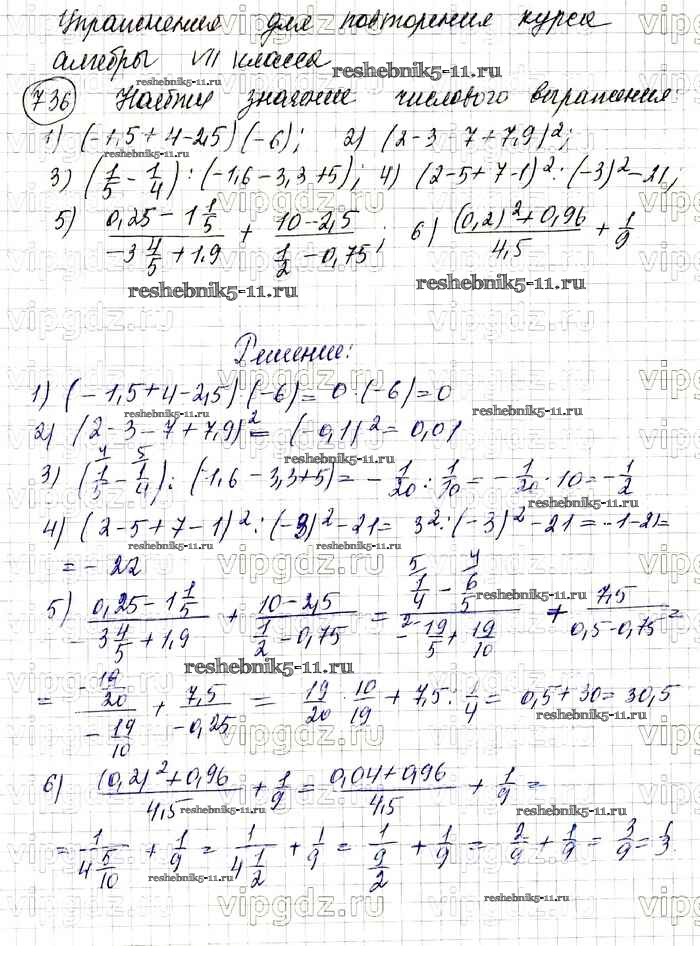 Упражнения для повторения курса
алгебры VII класса
reshebnik5-11.ru
736 Найдите значение числового выражения:
1) (-1,5+4-2,5)(-6); 2) (2-3-7+7,9)²;
3) (1/5 - 1/4) : (-1,6-3,3+5); 4) (2-5+7-1)² : (-3)² - 21;
5) (0,25 - 1 1/5)/(-3 4/5 + 1,9) + (10-2,5)/(1/2 - 0,75); 6) ((0,2)²+0,96)/4,5 + 1/9
reshebnik5-11.ru
Решение:
1) (-1,5+4-2,5)(-6) = 0·(-6) = 0
2) (2-3-7+7,9)² = (-0,1)² = 0,01
3) (1/5 - 1/4) : (-1,6-3,3+5) = -1/20 : 1/10 = -1/20 · 10 = -1/2
4) (2-5+7-1)² : (-3)² - 21 = 3² : (-3)² - 21 = -1-21=
= -22
5) (0,25 - 1 1/5)/(-3 4/5 + 1,9) + (10-2,5)/(1/2 - 0,75) = (1/4 - 6/5)/(-19/5 + 19/10) + 7,5/(0,5-0,75) =
reshebnik5-11.ru
= (-19/20)/(-19/10) + 7,5/(-0,25) = 19/20 · 10/19 + 7,5 : 1/4 = 0,5+30 = 30,5
6) ((0,2)²+0,96)/4,5 + 1/9 = (0,04+0,96)/4,5 + 1/9 =
= 1/(4 5/10) + 1/9 = 1/(4 1/2) + 1/9 = 1/(9/2) + 1/9 = 2/9 + 1/9 = 3/9 = 1/3.
reshebnik5-11.ru
vipgdz.ru